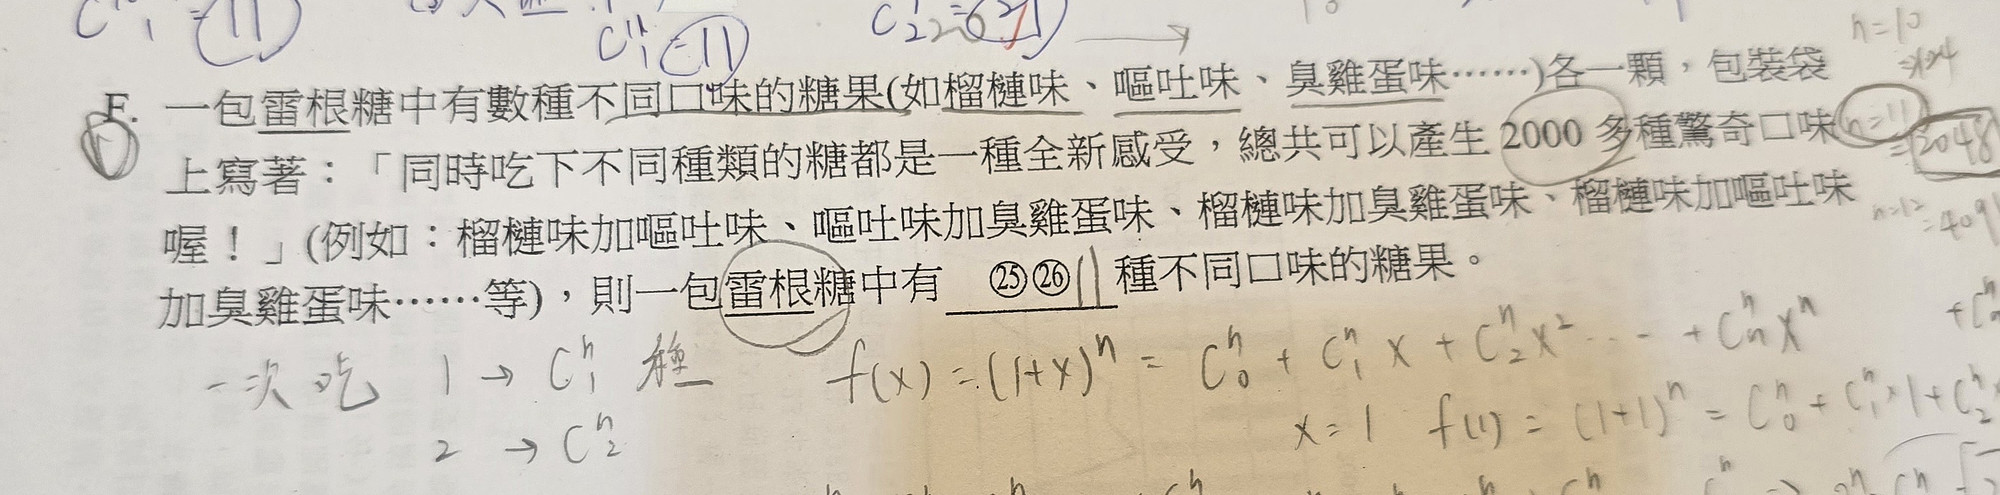 C₁ = 11
C¹¹₁ = 11
n=10
F. 一包雷根糖中有數種不同口味的糖果(如榴槤味、嘔吐味、臭雞蛋味……)各一顆，包裝袋
上寫著：「同時吃下不同種類的糖都是一種全新感受，總共可以產生 2000 多種驚奇口味
n=11
=2048
喔！」(例如：榴槤味加嘔吐味、嘔吐味加臭雞蛋味、榴槤味加臭雞蛋味、榴槤味加嘔吐味
n=12
加臭雞蛋味……等)，則一包雷根糖中有 ㉕㉖ 11 種不同口味的糖果。
一次吃 1 → Cⁿ₁ 種 f(x) = (1+x)ⁿ = Cⁿ₀ + Cⁿ₁ x + Cⁿ₂ x² … + Cⁿₙ xⁿ
2 → Cⁿ₂ x = 1 f(1) = (1+1)ⁿ = Cⁿ₀ + Cⁿ₁ × 1 + Cⁿ₂